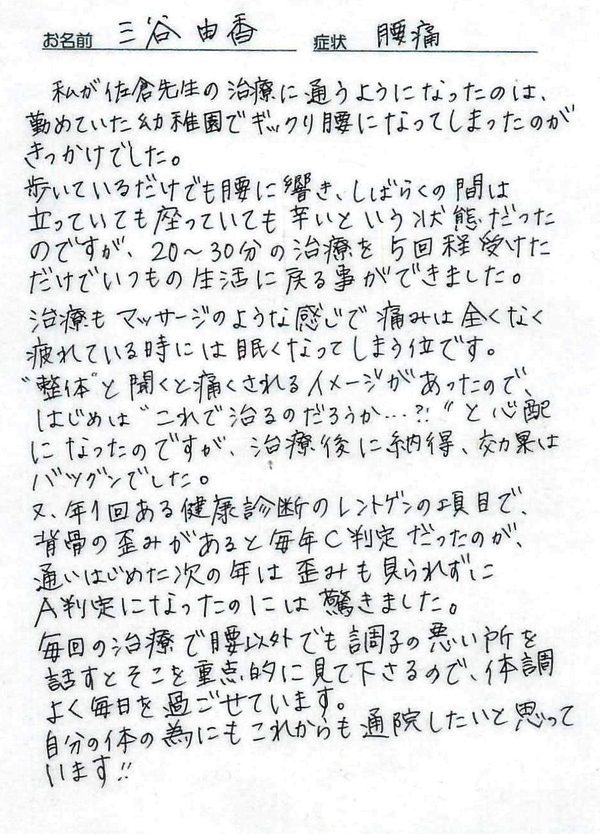 お名前 三谷 由香 症状 腰痛
私が佐倉先生の治療に通うようになったのは、
勤めていた幼稚園でギックリ腰になってしまったのが
きっかけでした。
歩いているだけでも腰に響き、しばらくの間は
立っていても座っていても辛いという状態だった
のですが、20〜30分の治療を5回程受けた
だけでいつもの生活に戻る事ができました。
治療もマッサージのような感じで痛みは全くなく
疲れている時には眠くなってしまう位です。
"整体"と聞くと痛くされるイメージがあったので、
はじめは"これで治るのだろうか…?!"と心配
になったのですが、治療後に納得、効果は
バツグンでした。
又、年1回ある健康診断のレントゲンの項目で、
背骨の歪みがあると毎年C判定だったのが、
通いはじめた次の年は歪みも見られずに
A判定になったのには驚きました。
毎回の治療で腰以外でも調子の悪い所を
話すとそこを重点的に見て下さるので、体調
よく毎日を過ごせています。
自分の体の為にもこれからも通院したいと思って
います!!